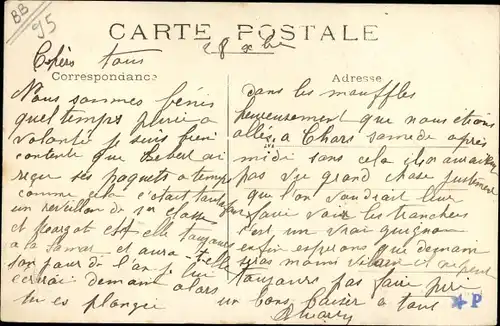 BB
95
CARTE POSTALE
28 xbre
Chers tous
Correspondance
Adresse
Nous sommes bénis
quel temps pluie a
volonté je suis bien
contente que Bebert ai
reçu ses paquets a temps
comme cela c'était
un reveillon de 1er classe
et Margot est elle toujours
a la et aura-t-elle
son jour de l'an je lui
ecrirai demain alors
tu es plongée
dans les mouffles
heureusement que nous étions
allés a Chars samedi après
midi sans cela
pas vu grand chose justement
que l'on voudrait leur
faire voir les tranchées
c'est un vrai guignon
enfin esperons que demain
sera moins vilain et
toujours pas faire pire
un bon baiser a tous
Mary
P